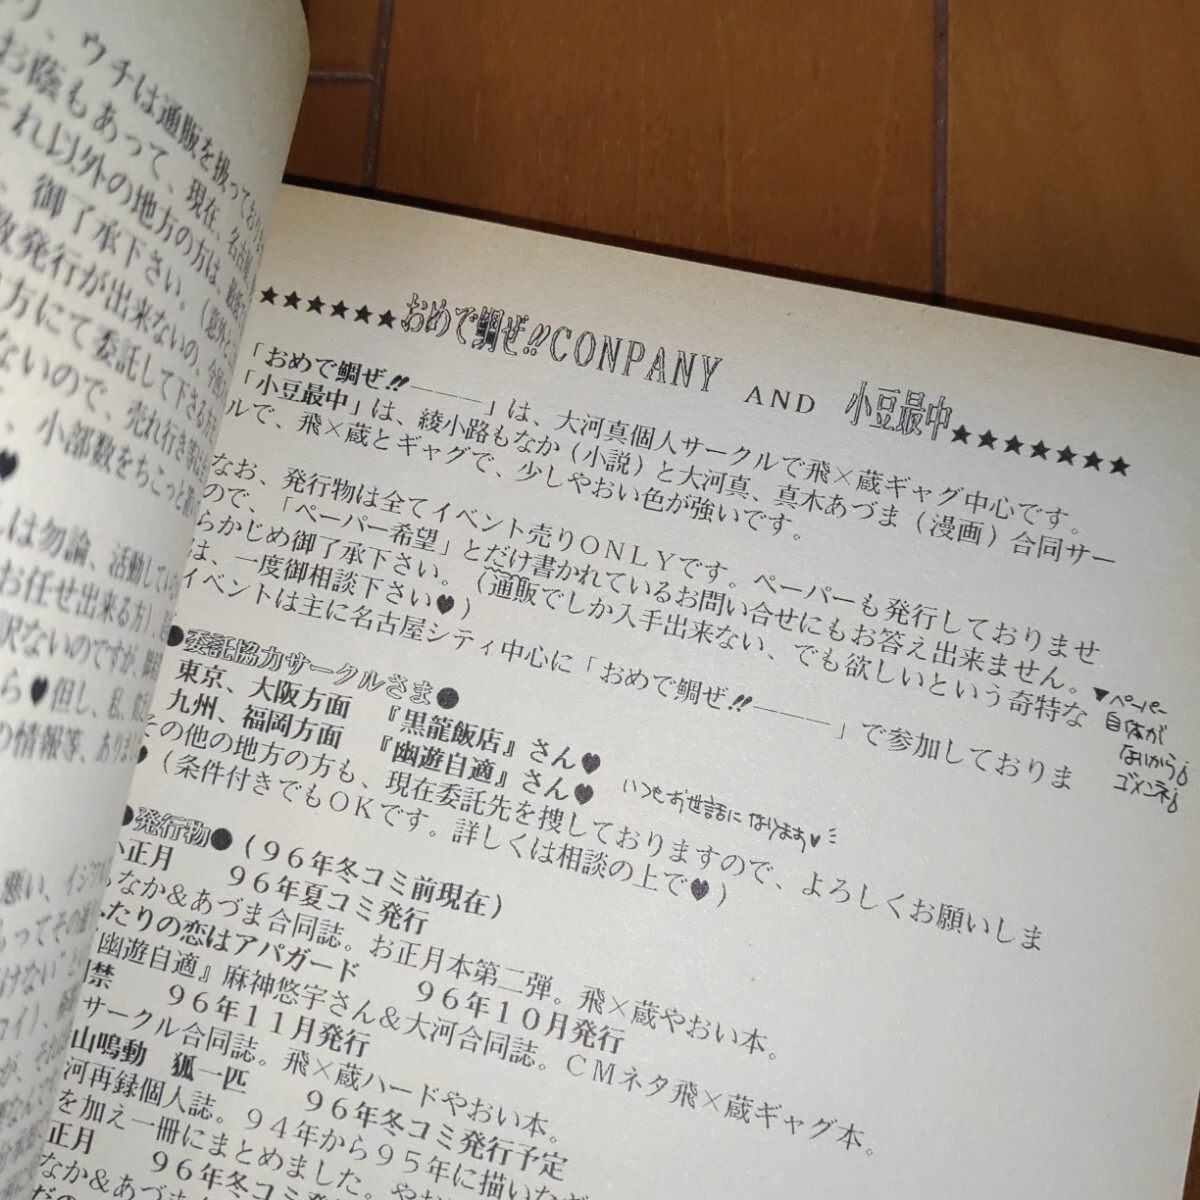 り、ウチは通販を扱っておりま
お蔭もあって、現在、名古屋
それ以外の地方の方は、
、御了承下さい。(意外と
数発行が出来ないの、今回
方にて委託して下さる方
ないので、売れ行き等は
、小部数をちこっと
♥
んは勿論、活動してい
お任せ出来る方)、
訳ないのですが、
ら♥但し、私、
の情報等、ありまし
★★★★★★おめで鯛ぜ!!CONPANY AND 小豆最中★★★★★★★
「おめで鯛ぜ!!―――」は、大河真個人サークルで飛×蔵ギャグ中心です。
「小豆最中」は、綾小路もなか(小説)と大河真、真木あづま(漫画)合同サー
ルで、飛×蔵とギャグで、少しやおい色が強いです。
なお、発行物は全てイベント売りONLYです。ペーパーも発行しておりませ
ので、「ペーパー希望」とだけ書かれているお問い合せにもお答え出来ません。
らかじめ御了承下さい。(通販でしか入手出来ない、でも欲しいという奇特な
は、一度御相談下さい♥)
イベントは主に名古屋シティ中心に「おめで鯛ぜ!!―――」で参加しておりま
▼ペーパー
自体が
ないから
ゴメンネ
●委託協力サークルさま●
東京、大阪方面 『黒龍飯店』さん♥
九州、福岡方面 『幽遊自適』さん♥
いつもお世話になります♥
その他の地方の方も、現在委託先を捜しておりますので、よろしくお願いしま
♥(条件付きでもOKです。詳しくは相談の上で♥)
●発行物●(96年冬コミ前現在)
い正月 96年夏コミ発行
もなか&あづま合同誌。お正月本第二弾。飛×蔵やおい本。
ふたりの恋はアパガード 96年10月発行
『幽遊自適』麻神悠宇さん&大河合同誌。CMネタ飛×蔵ギャグ本。
禁 96年11月発行
サークル合同誌。飛×蔵ハードやおい本。
山鳴動 狐一匹 96年冬コミ発行予定
河再録個人誌。94年から95年に描いた
を加え一冊にまとめました。
正月 96年冬コミ発
なか&あづま